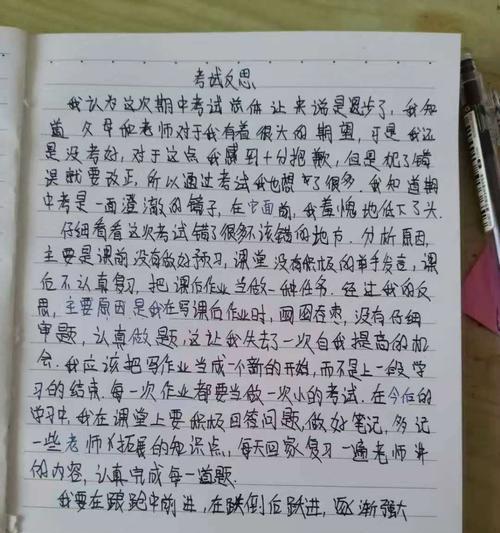 考试反思
我认为这次期中考试总体让来说是退步了,我知
道父母和老师对于我有着很大的期望,可是我还
是没考好,对于这点我感到十分抱歉,但是犯了错
误就要改正,所以通过考试我也想了很多.我知道期
中考是一面澄澈的镜子,在它面前,我羞愧地低下了头.
仔细看看这次考试错了很多不该错的地方.分析原因,
主要是课前没有做好预习,课堂没有积极的举手发言,课
后不认真复习,把课后作业当做一种任务.经过我的反
思,主要原因是我在写课后作业时,囫囵吞枣,没有仔细
审题,认真做题,这让我失去了一次自我提高的机
会.我应该把写作业当成一个新的开始,而不是上一段学
习的结束.每一次作业都要当做一次小的考试.在今后的
学习中,我在课堂上要积极回答问题,做好笔记,多记
一些老师拓展的知识点,每天回家复习一遍老师讲
的内容,认真完成每一道题.
我要在踉跄中前进,在跌倒后跃进,逐渐强大